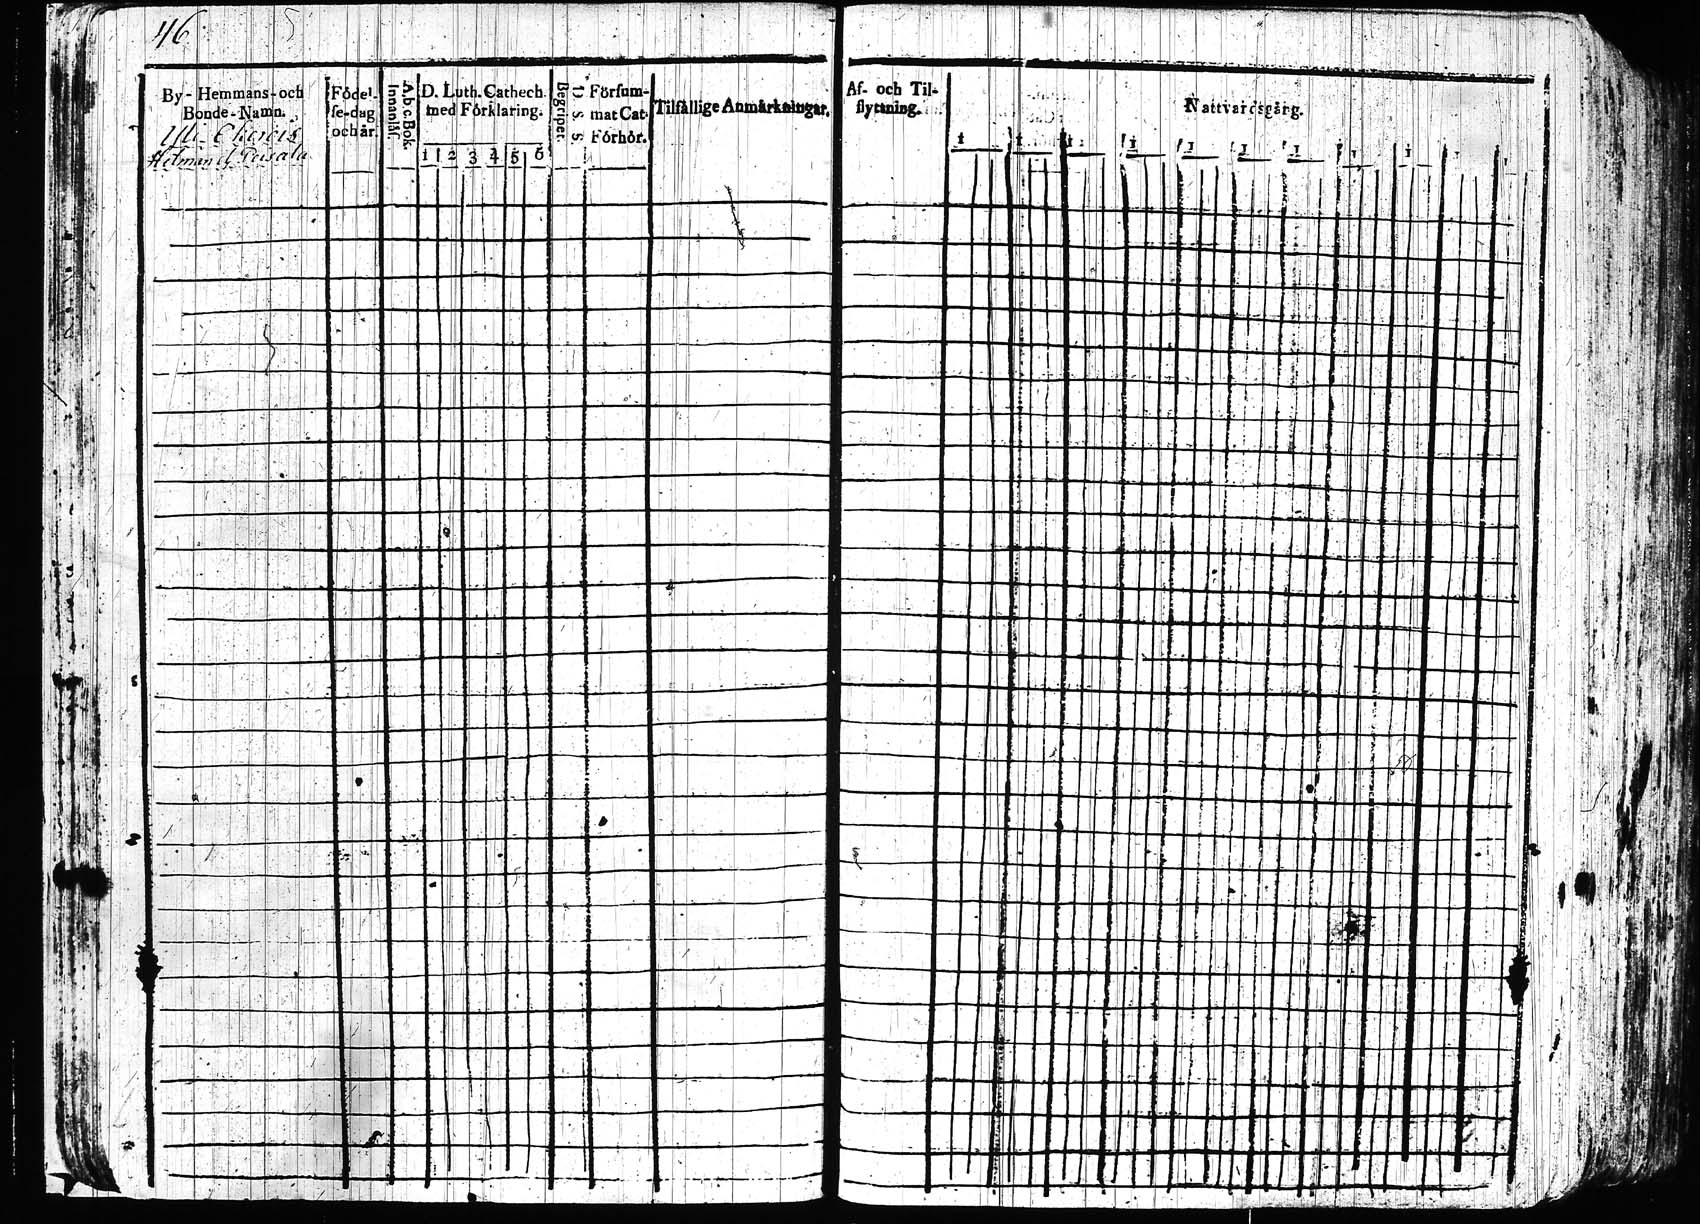 46
By-Hemmans-och
Bonde-Namn.
Födel-
se-dag
och år.
A.b.c.Bok.
Innanläs.
D. Luth. Cathech.
med Förklaring.
1 2 3 4 5 6
Begriper.
Försum-
mat Cat.
Förhör.
Tilfällige Anmärkningar.
Af- och Til-
flyttning.
Nattvardsgång.